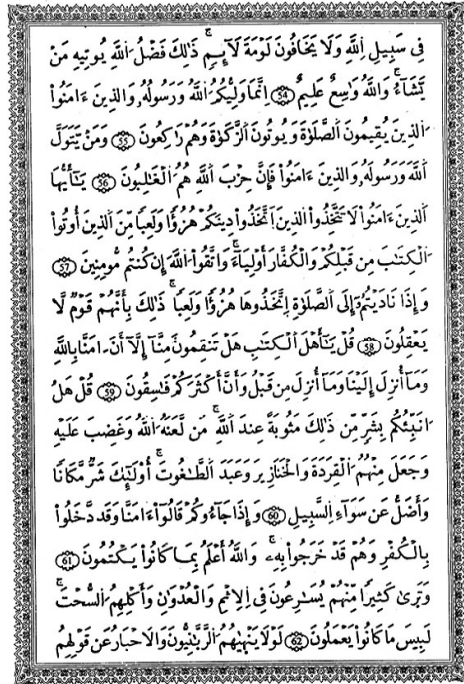 فِى سَبِيلِ اِ۬للَّهِ وَلَا يَخَافُونَ لَوْمَةَ لَآئِمٖ ذَٰلِكَ فَضْلُ اُ۬للَّهِ يُوتِيهِ مَنْ
يَّشَآءُ وَاللَّهُ وَٰسِعٌ عَلِيمٌ 54 اِنَّمَا وَلِيُّكُمُ اُ۬للَّهُ وَرَسُولُهُۥ وَالذِينَ ءَامَنُوا۟
اُ۬لذِينَ يُقِيمُونَ اَ۬لصَّلَوٰةَ وَيُوتُونَ اَ۬لزَّكَوٰةَ وَهُمْ رَٰكِعُونَ 55 وَمَنْ يَّتَوَلَّ
اَ۬للَّهَ وَرَسُولَهُۥ وَالذِينَ ءَامَنُوا۟ فَإِنَّ حِزْبَ اَ۬للَّهِ هُمُ اُ۬لْغَٰلِبُونَ 56 يَـٰٓأَيُّهَا
اَ۬لذِينَ ءَامَنُوا۟ لَا تَتَّخِذُوا۟ اُ۬لذِينَ اَ۪تَّخَذُوا۟ دِينَكُمْ هُزُؤًا وَلَعِبًا مِّنَ اَ۬لذِينَ أُوتُوا۟
اُ۬لْكِتَٰبَ مِن قَبْلِكُمْ وَالْكُفَّارَ أَوْلِيَآءَ وَاتَّقُوا۟ اُ۬للَّهَ إِن كُنتُم مُّومِنِينَ 57
وَإِذَا نَادَيْتُمُۥٓ إِلَى اَ۬لصَّلَوٰةِ اِ۪تَّخَذُوهَا هُزُؤًا وَلَعِبًا ذَٰلِكَ بِأَنَّهُمْ قَوْمٌ لَّا
يَعْقِلُونَ 58 قُلْ يَـٰٓأَهْلَ اَ۬لْكِتَٰبِ هَلْ تَنقِمُونَ مِنَّآ إِلَّآ أَنَ ـ امَنَّا بِاللَّهِ
وَمَآ أُنزِلَ إِلَيْنَا وَمَآ أُنزِلَ مِن قَبْلُ وَأَنَّ أَكْثَرَكُمْ فَٰسِقُونَ 59 قُلْ هَلُ
ا۟نَبِّئُكُم بِشَرٍّ مِّن ذَٰلِكَ مَثُوبَةً عِندَ اَ۬للَّهِ مَن لَّعَنَهُ اُ۬للَّهُ وَغَضِبَ عَلَيْهِ
وَجَعَلَ مِنْهُمُ اُ۬لْقِرَدَةَ وَالْخَنَازِيرَ وَعَبَدَ اَ۬لطَّٰغُوتَ أُو۟لَـٰٓئِكَ شَرٌّ مَّكَانًا
وَأَضَلُّ عَن سَوَآءِ اِ۬لسَّبِيلِ 60 وَإِذَا جَآءُوكُمْ قَالُوٓا۟ ءَامَنَّا وَقَد دَّخَلُوا۟
بِالْكُفْرِ وَهُمْ قَدْ خَرَجُوا۟ بِهِۦ وَاللَّهُ أَعْلَمُ بِمَا كَانُوا۟ يَكْتُمُونَ 61
وَتَرَىٰ كَثِيرًا مِّنْهُمْ يُسَٰرِعُونَ فِى اِ۬لِاثْمِ وَالْعُدْوَٰنِ وَأَكْلِهِمُ اُ۬لسُّحْتَ
لَبِيسَ مَا كَانُوا۟ يَعْمَلُونَ 62 لَوْلَا يَنْهَيٰهُمُ اُ۬لرَّبَّٰنِيُّونَ وَالَاحْبَارُ عَن قَوْلِهِمُ